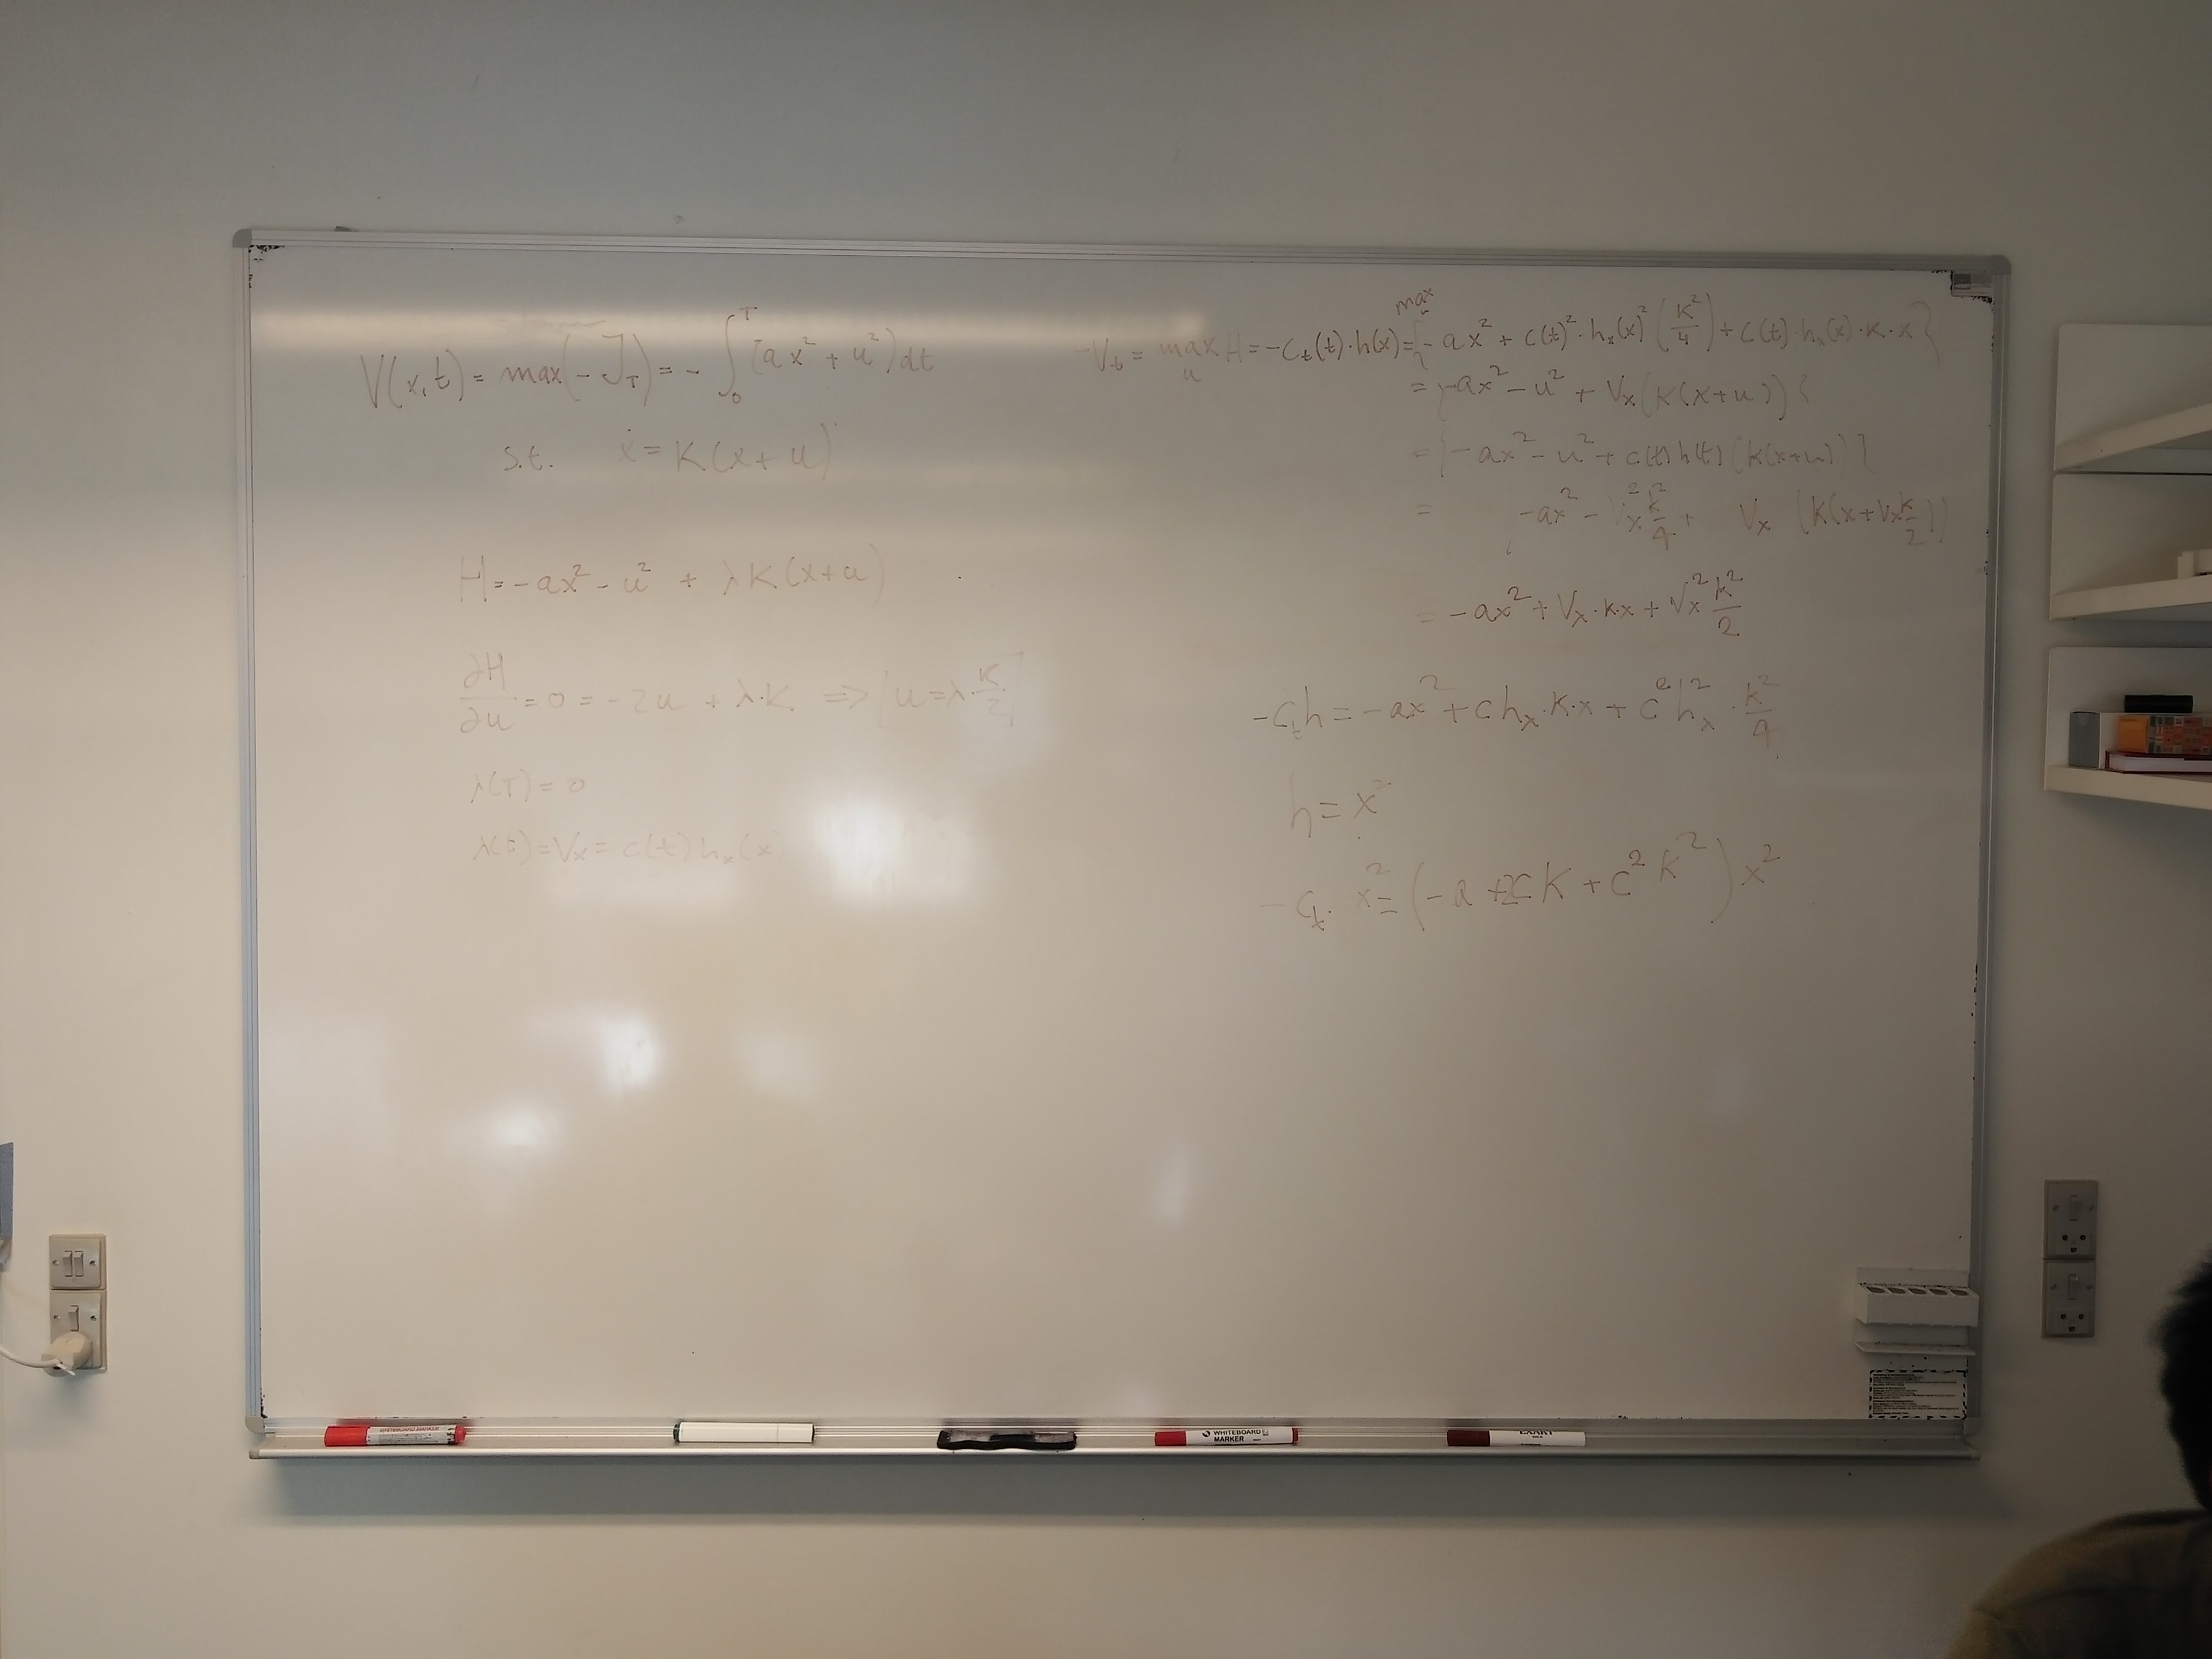 V(x,t) = max(-J_T) = - ∫_0^T (ax² + u²)dt
s.t. ẋ = K(x+u)
H = -ax² - u² + λK(x+u)
∂H/∂u = 0 = -2u + λ·K => [u = λ·K/2]
λ(T) = 0
λ(t) = V_x = c(t) h_x(x)
-V_t = max_u H = -C_t(t)·h(x) = max_u {-ax² + c(t)²·h_x(x)² (K²/4) + c(t)·h_x(x)·K·x}
= {-ax² - u² + V_x(K(x+u))}
= {-ax² - u² + c(t)h(t)(K(x+u))}
= -ax² - V_x² K²/4 + V_x (K(x+V_x K/2))
= -ax² + V_x·K·x + V_x² K²/2
-C_t h = -ax² + c h_x·K·x + c² h_x² · K²/4
h = x²
-C_t · x² = (-a + 2cK + c²K²) x²
WHITEBOARD MARKER
WHITEBOARD MARKER